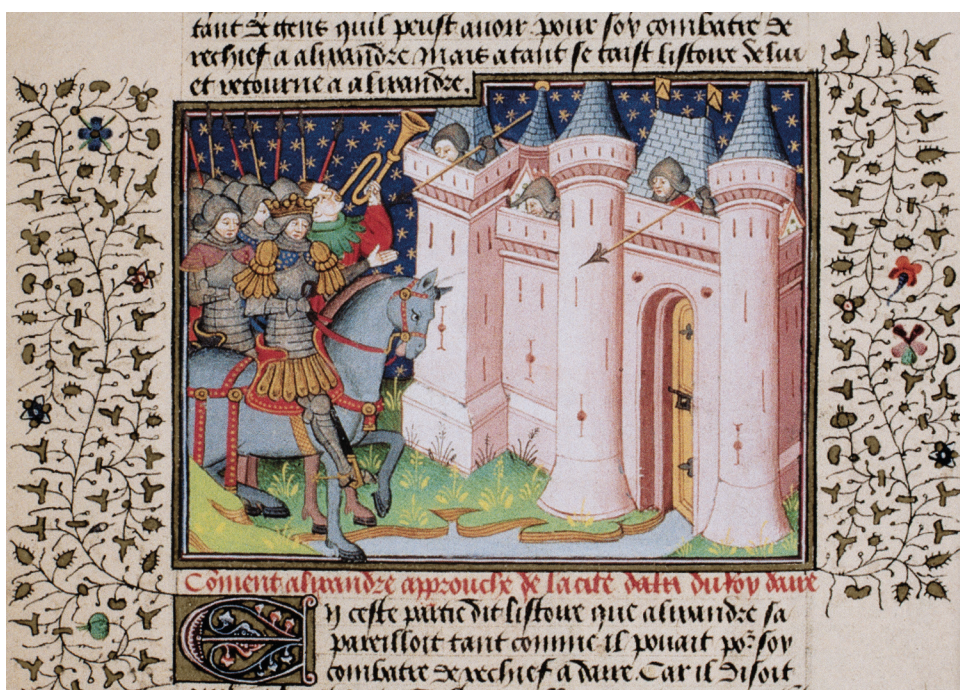 tant de gens quil peust auoir pour soy combatre de
rechief a alixandre Mais atant se taist listoire de lui
et retourne a alixandre.
Coment alixandre approuche de la cite du Roy daire
En ceste partie dit listoire que alixandre sa
pareilloit tant comme il pouait po2 soy
combatre de rechief a daire. Car il disoit